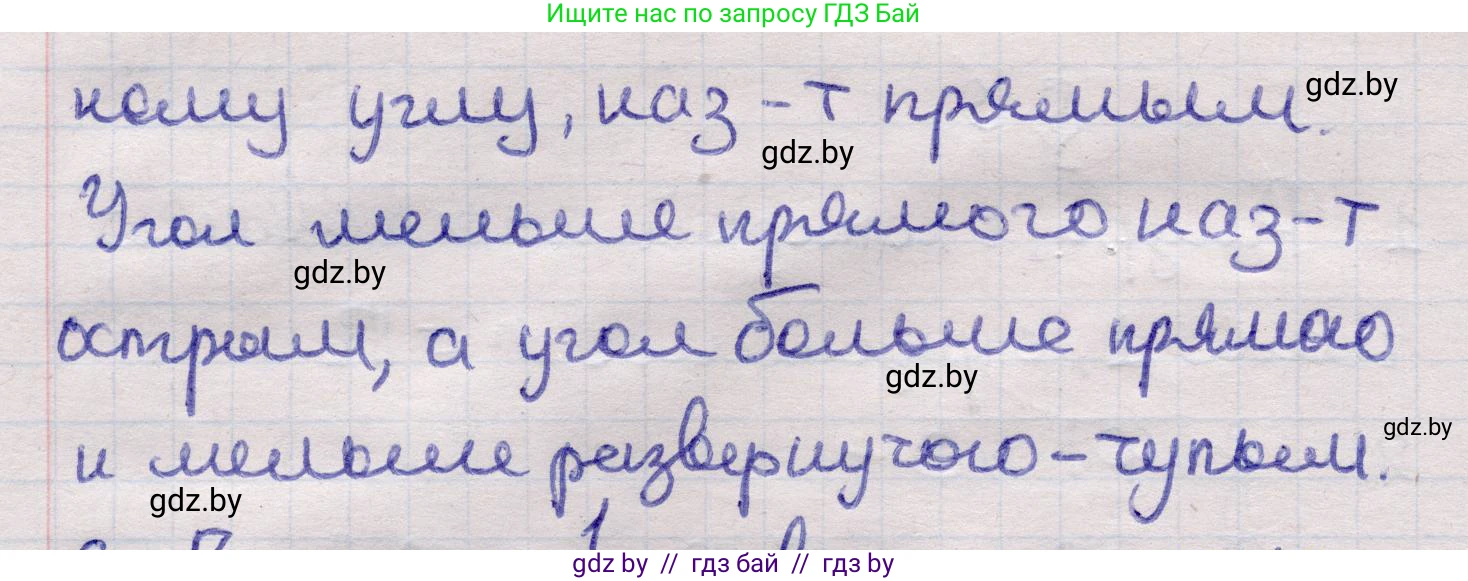 Ищите нас по запросу ГДЗ Бай
ному углу, наз-т прямым. gdz.by
gdz.by
Угол меньше прямого наз-т
gdz.by
острым, а угол больше прямого
gdz.by
и меньше развернутого - тупым. gdz.by
gdz.by
gdz by // гдз бай // гдз by